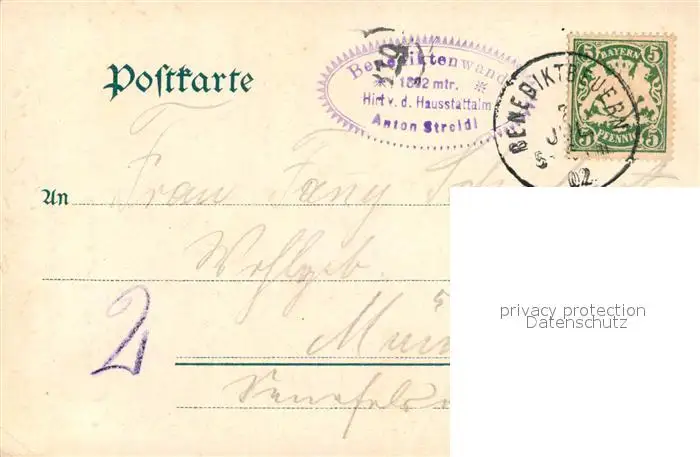 Postkarte
Benediktenwand
1802 mtr.
Hirt v. d. Hausstattalm
Anton Streidl
BAYERN
5 5
5 5
PFENNIG
BENEDIKTBEUERN
02
An Frau Fany
Wohlgeb.
2
privacy protection
Datenschutz